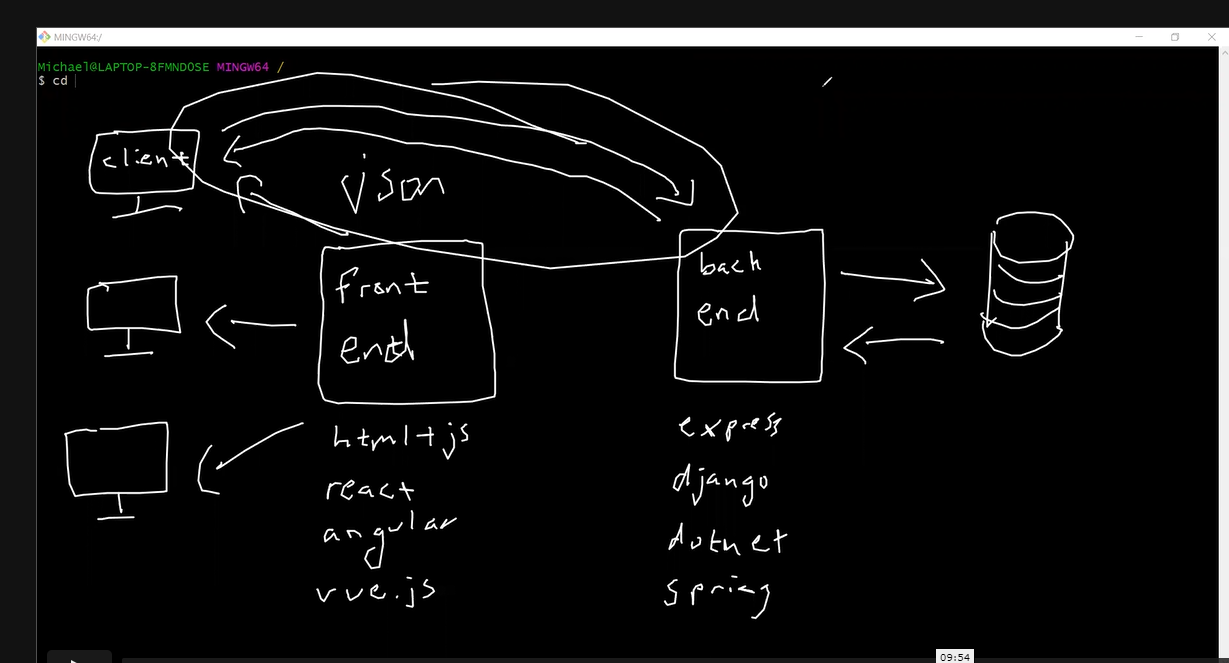 MINGW64:/
Michael@LAPTOP-8FMNDOSE MINGW64 /
$ cd
client
json
front
end
back
end
html+js
react
angular
vue.js
express
django
dotnet
spring
09:54